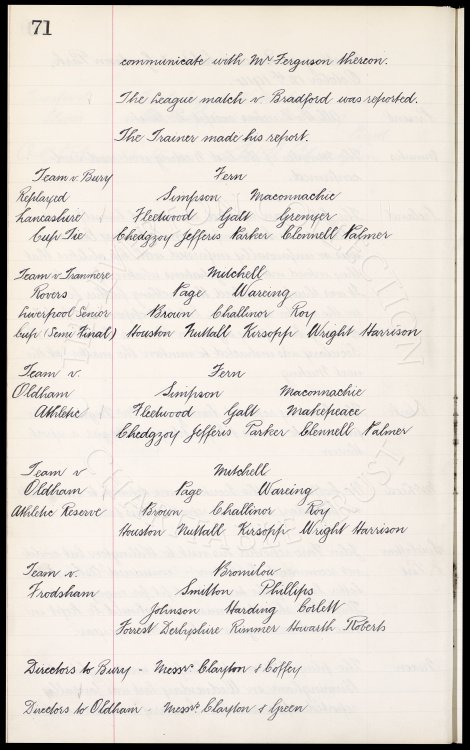 71
communicate with Mr Ferguson thereon.
The League match v. Bradford was reported.
The Trainer made his report.
Team v. Bury Fern
Replayed Simpson Maconnachie
Lancashire Fleetwood Galt Grenyer
Cup Tie Chedgzoy Jefferis Parker Clennell Palmer
Team v. Tranmere Mitchell
Rovers Page Wareing
Liverpool Senior Brown Challinor Roy
Cup (Semi Final) Houston Nuttall Kirsopp Wright Harrison
Team v. Fern
Oldham Simpson Maconnachie
Athletic Fleetwood Galt Makepeace
Chedgzoy Jefferis Parker Clennell Palmer
Team v Mitchell
Oldham Page Wareing
Athletic Reserve Brown Challinor Roy
Houston Nuttall Kirsopp Wright Harrison
Team v. Bromilow
Frodsham Smitton Phillips
Johnson Harding Corlett
Forrest Derbyshire Rimmer Howarth Roberts
Directors to Bury - Messrs. Clayton & Coffey
Directors to Oldham - Messrs. Clayton & Green